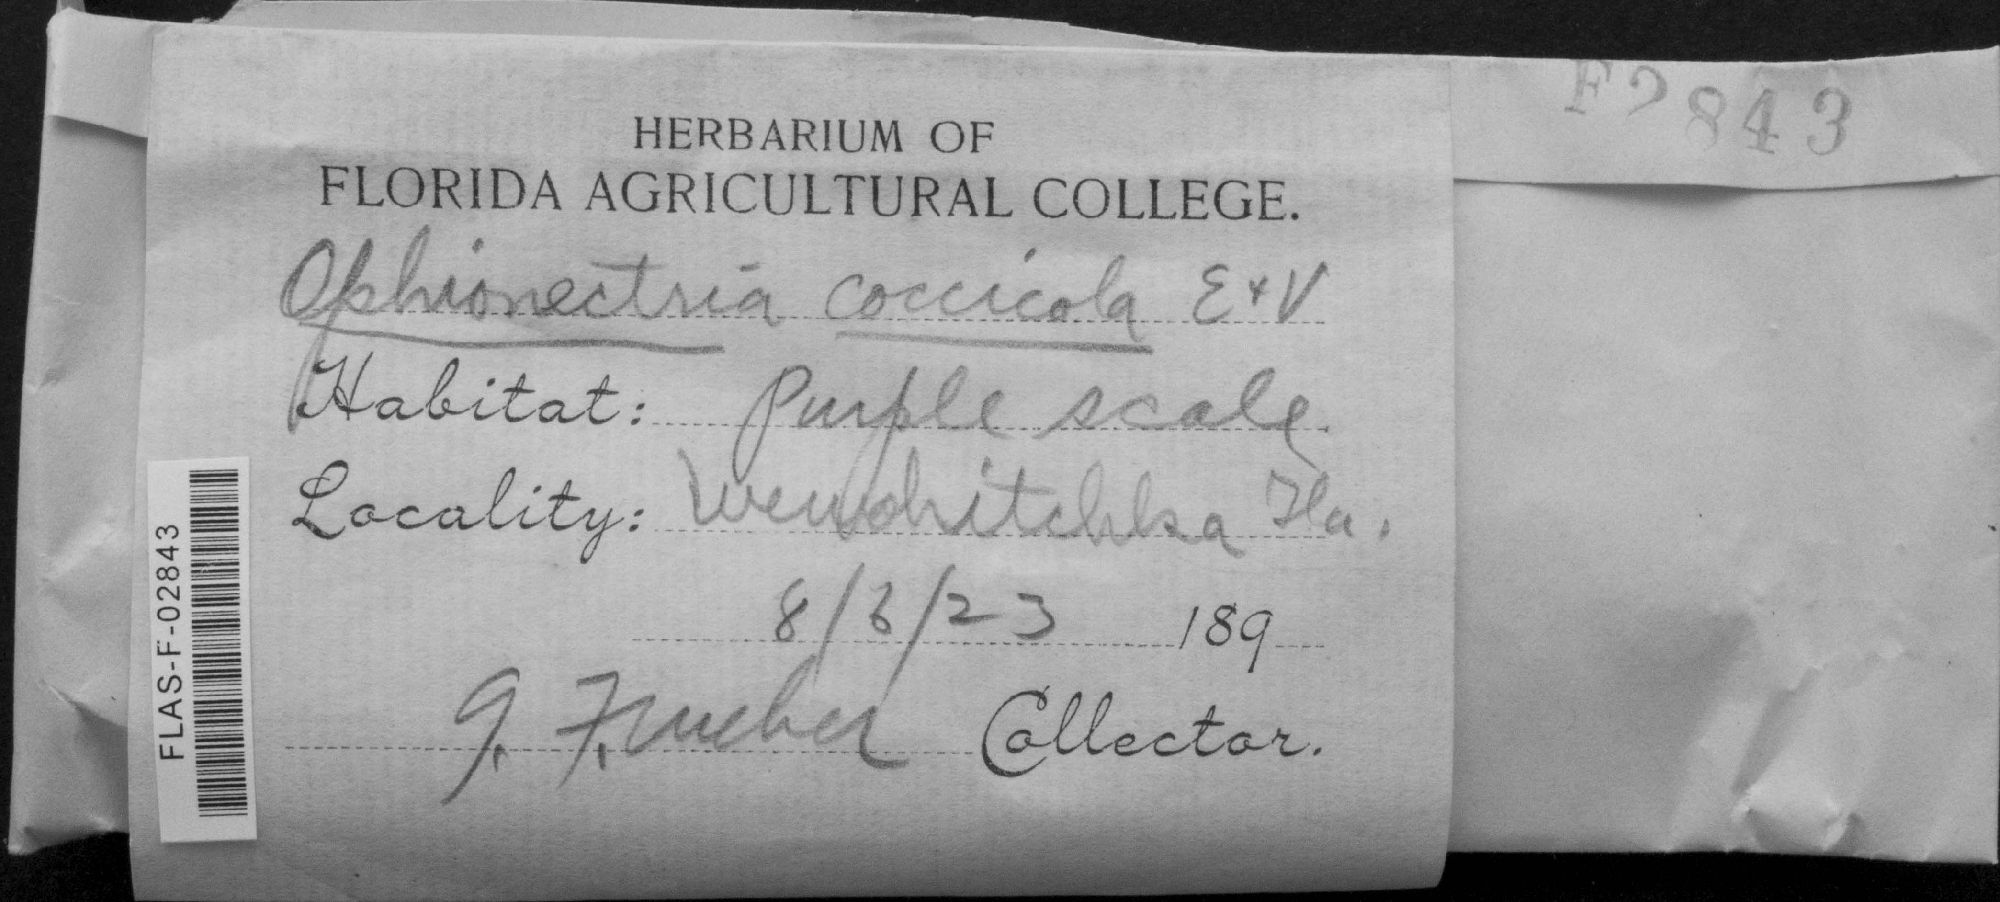 F2843
HERBARIUM OF
FLORIDA AGRICULTURAL COLLEGE.
Ophionectria coccicola E + V
Habitat: Purple scale
Locality: Wewahitchka Fla.
8/6/23 189
Collector.
FLAS-F-02843